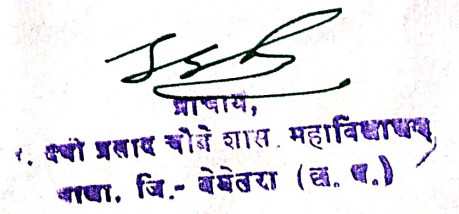 प्राचार्य,
प्रसाद चौबे शास. महाविद्यालय
जि.- बेमेतरा (छ. ग.)